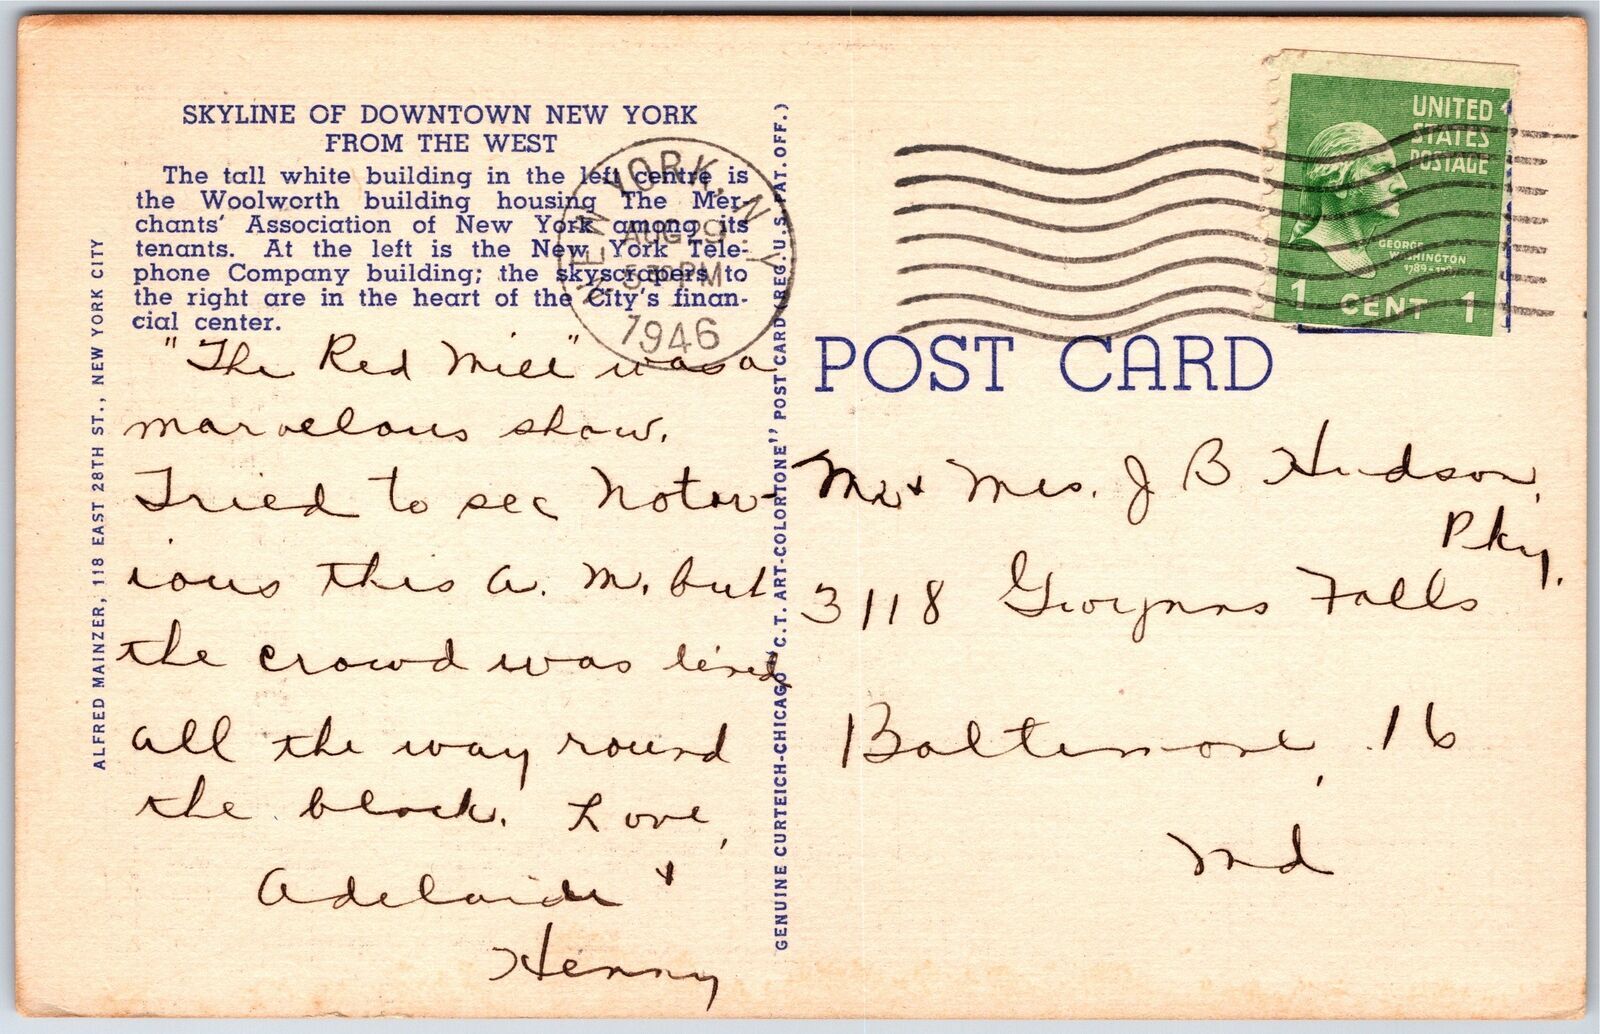 SKYLINE OF DOWNTOWN NEW YORK
FROM THE WEST
The tall white building in the left centre is
the Woolworth building housing The Mer-
chants' Association of New York among its
tenants. At the left is the New York Tele-
phone Company building; the skyscrapers to
the right are in the heart of the City's finan-
cial center.
"The Red Mill" was a
marvelous show.
Tried to see Notor-
ious this A. M. but
the crowd was lined
all the way round
the block. Love,
Adelaide +
Henny
ALFRED MAINZER, 118 EAST 28TH ST., NEW YORK CITY
GENUINE CURTEICH-CHICAGO "C.T. ART-COLORTONE" POST CARD (REG. U.S. PAT. OFF.)
NEW YORK, N.Y.
AUG
PM
1946
UNITED
STATES
POSTAGE
GEORGE
WASHINGTON
1789-
1 CENT 1
POST CARD
Mr + Mrs. J B Hudson,
Pky.
3118 Gwynns Falls
Baltimore, 16
Md